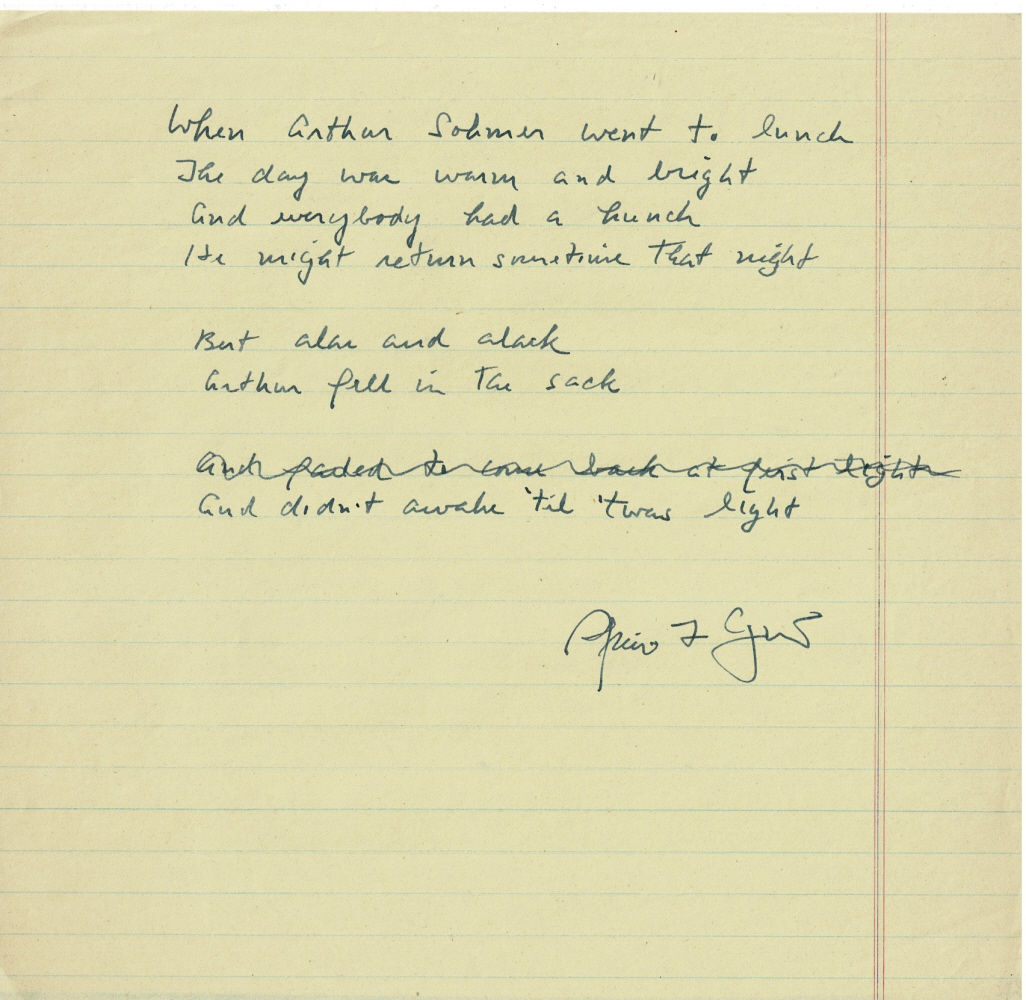 When Arthur Sohmer went to lunch
The day was warm and bright
And everybody had a hunch
He might return sometime that night
But alas and alack
Arthur fell in the sack
And failed to come back at first light
And didn't awake 'til 'twas light
Spiro T Agnew